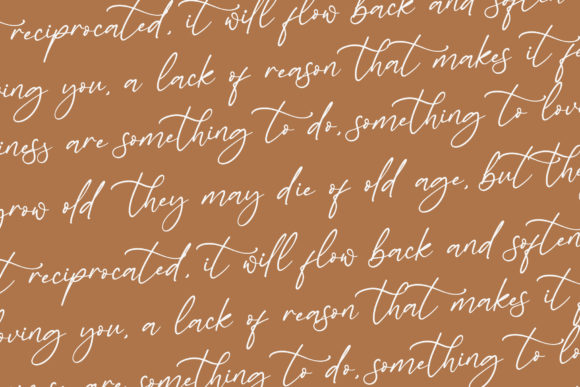 reciprocated, it will flow back and soften
ving you, a lack of reason that makes it fe
iness are something to do, something to lov
grow old they may die of old age, but the
t reciprocated, it will flow back and soften
loving you, a lack of reason that makes it f
iness are something to do, something to lo